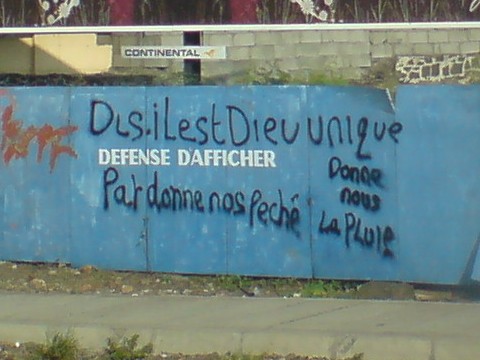 CONTINENTAL
Dis.iL est Dieu unique
DEFENSE D'AFFICHER
Pardonne nos Peché
Donne
nous
La PLuie